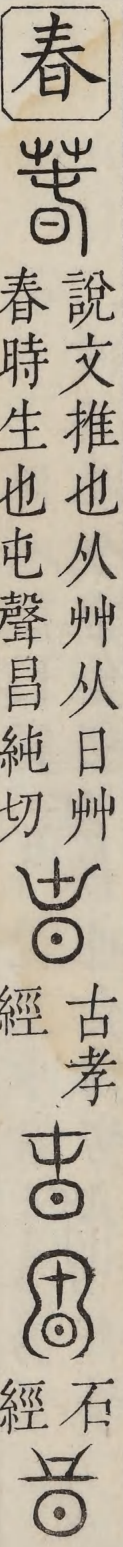 春
說文推也从艸从日艸
春時生也屯聲昌純切
古孝
經
石
經